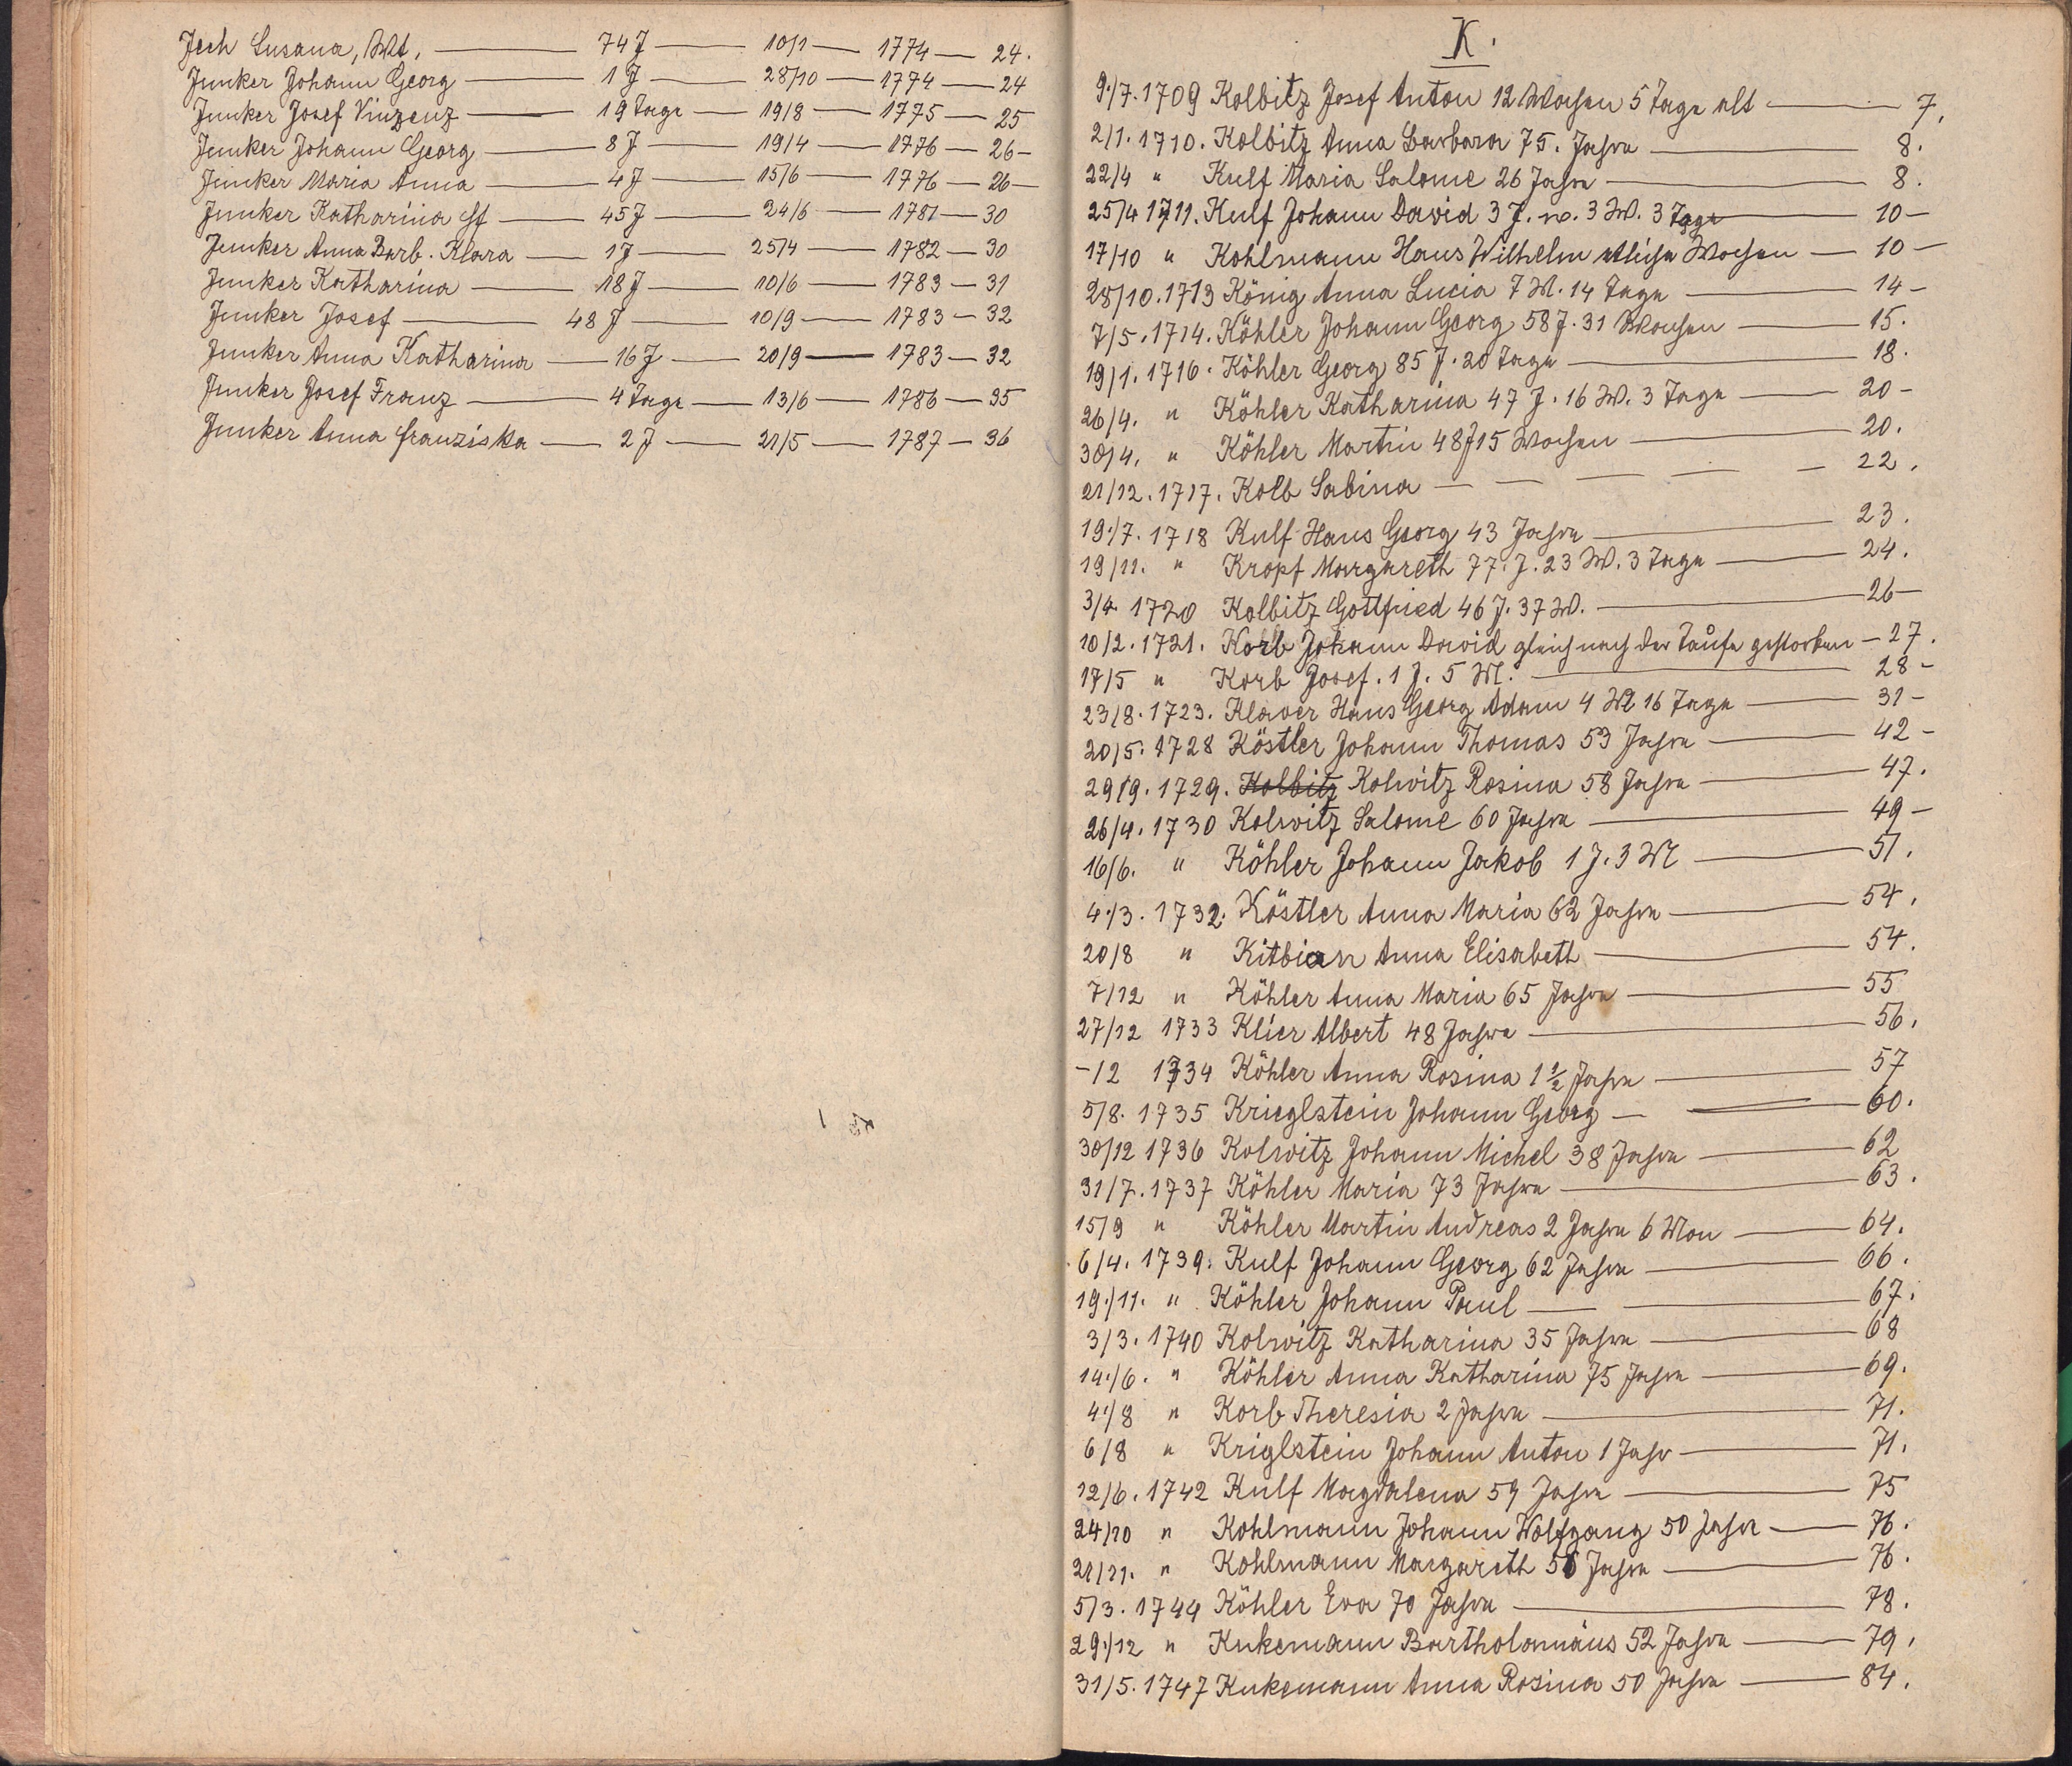 Jech Susana, Wt, — 74 J — 10/1 — 1774 — 24.
Junker Johann Georg — 1 J — 28/10 — 1774 — 24
Junker Josef Vinzenz — 19 Tage — 19/8 — 1775 — 25
Junker Johann Georg — 8 J — 19/4 — 1776 — 26 —
Junker Maria Anna — 4 J — 15/6 — 1776 — 26 —
Junker Katharina — 45 J — 24/6 — 1781 — 30
Junker Anna Barb. Klara — 1 J — 25/4 — 1782 — 30
Junker Katharina — 18 J — 10/6 — 1783 — 31
Junker Josef — 48 J — 10/9 — 1783 — 32
Junker Anna Katharina — 16 J — 20/9 — 1783 — 32
Junker Josef Franz — 4 Tage — 13/6 — 1786 — 35
Junker Anna Franziska — 2 J — 21/5 — 1787 — 36
K.
9./7. 1709 Kolbitz Josef Anton 12 Wochen 5 Tage alt — 7.
2/1. 1710. Kolbitz Anna Barbara 75. Jahre — 8.
22/4 " Kulf Maria Salome 26 Jahre — 8.
25/4 1711. Kulf Johann David 3 J. w. 3 W. 3 Tage — 10 —
17/10 " Kohlmann Hans Wilhelm etliche Wochen — 10 —
28/10. 1713 König Anna Lucia 7 M. 14 Tage — 14 —
7/5. 1714. Köhler Johann Georg 58 J. 31 Wochen — 15.
19/1. 1716. Köhler Georg 85 J. 20 Tage — 18.
26/4. " Köhler Katharina 47 J. 16 W. 3 Tage — 20 —
30/4. " Köhler Martin 48 J 15 Wochen — 20.
21/12. 1717. Kolb Sabina — — — — — 22.
19./7. 1718 Kulf Hans Georg 43 Jahre — 23.
19/11. " Kropf Margareth 77. J. 23 W. 3 Tage — 24.
3/4. 1720 Kolbitz Gottfried 46 J. 37 W. — 26 —
10/2. 1721. Korb Johann David gleich nach der Taufe gestorben — 27.
17/5 " Korb Josef. 1 J. 5 M. — 28 —
23/8. 1723. Klaver Hans Georg Adam 4 M 16 Tage — 31 —
20/5. 1728 Köstler Johann Thomas 53 Jahre — 42 —
29/9. 1729. Kolbitz Kolwitz Rosina 58 Jahre — 47.
26/4. 1730 Kolwitz Salome 60 Jahre — 49 —
16/6. " Köhler Johann Jakob 1 J. 3 M — 51.
4./3. 1732. Köstler Anna Maria 62 Jahre — 54.
20/8 " Kitbian Anna Elisabeth — 54.
7/12 " Köhler Anna Maria 65 Jahre — 55
27/12 1733 Klier Albert 48 Jahre — 56.
-/2 1734 Köhler Anna Rosina 1 1/2 Jahre — 57
5/8. 1735 Krieglstein Johann Georg — — 60.
30/12 1736 Kolwitz Johann Michel 38 Jahre — 62
31/7. 1737 Köhler Maria 73 Jahre — 63.
15/9 " Köhler Martin Andreas 2 Jahre 6 Mon — 64.
6/4. 1739. Kulf Johann Georg 62 Jahre — 66.
19./11. " Köhler Johann Paul — — 67.
3/3. 1740 Kolwitz Katharina 35 Jahre — 68
14./6. " Köhler Anna Katharina 75 Jahre — 69.
4./8 " Korb Theresia 2 Jahre — 71.
6/8 " Kriglstein Johann Anton 1 Jahr — 71.
12/6. 1742 Kulf Magdalena 59 Jahre — 75
24/10 " Kohlmann Johann Wolfgang 50 Jahre — 76.
21/11. " Kohlmann Margareth Jahre — 76.
5/3. 1744 Köhler Eva 70 Jahre — 78.
29./12 " Kukemann Bartholomäus 52 Jahre — 79.
31/5. 1747 Kukemann Anna Rosina 50 Jahre — 84.